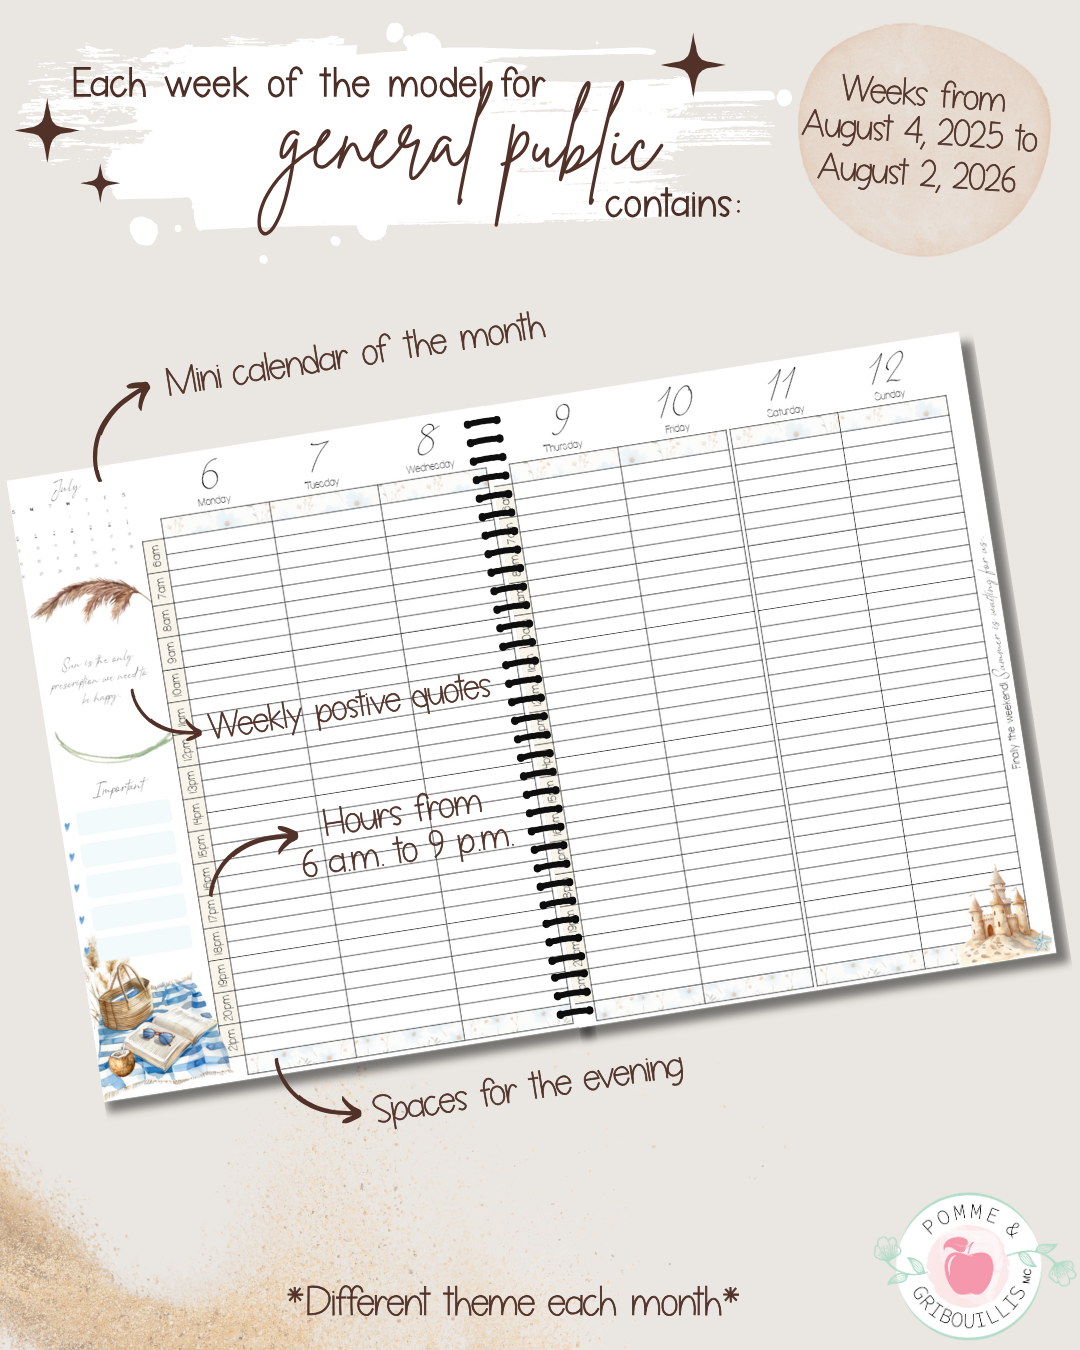 Each week of the model for
general public
contains:
Weeks from
August 4, 2025 to
August 2, 2026
Mini calendar of the month
July
6
Monday
7
Tuesday
8
Wednesday
9
Thursday
10
Friday
11
Saturday
12
Sunday
6am
7am
8am
9am
10am
11am
12pm
13pm
14pm
15pm
16pm
17pm
18pm
19pm
20pm
21pm
Sun is the only
prescription we need to
be happy.
Weekly postive quotes
Important
Hours from
6 a.m. to 9 p.m.
Finally the weekend! Summer is waiting for us.
Spaces for the evening
*Different theme each month*
POMME &
GRIBOUILLIS MC